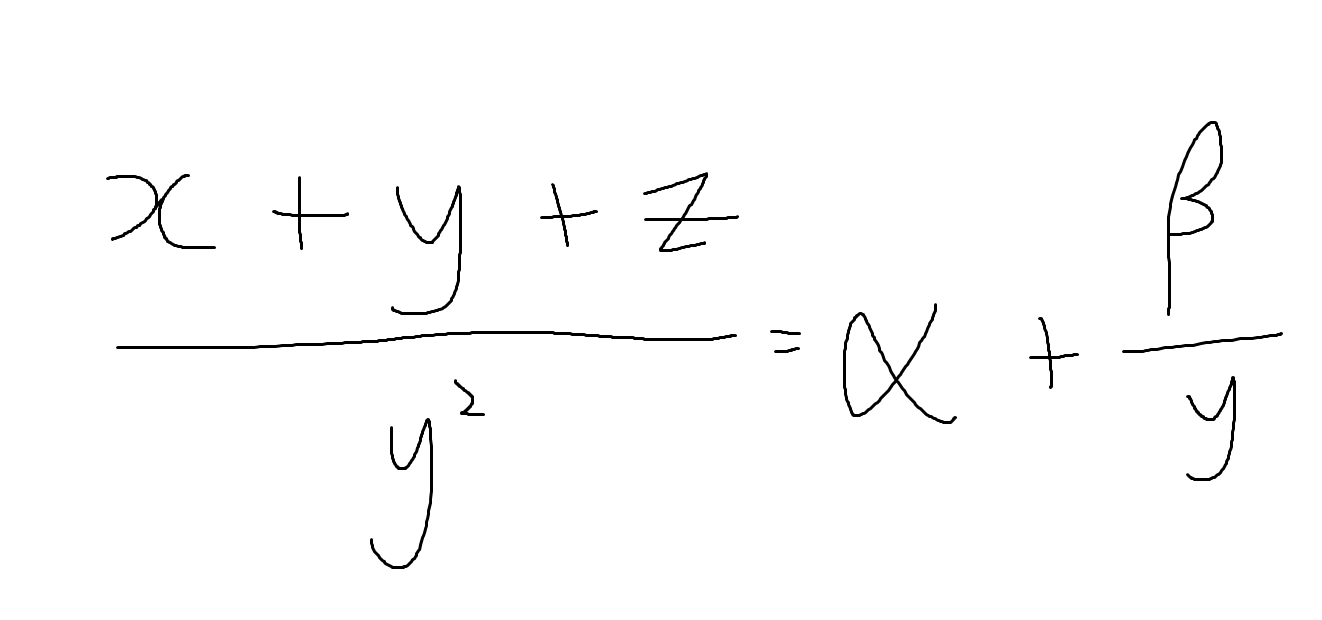 \frac{x + y + z}{y^2} = \alpha + \frac{\beta}{y}